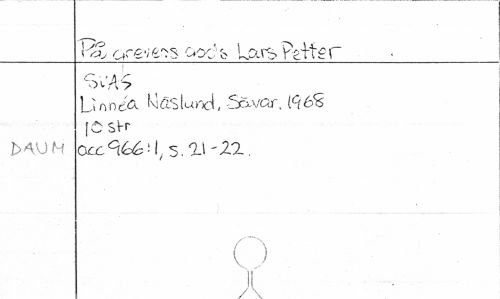 På grevens gods Lars Petter
SVAS
Linnéa Näslund, Sävar. 1968
10 str
DAUM acc 966:1, s. 21-22.